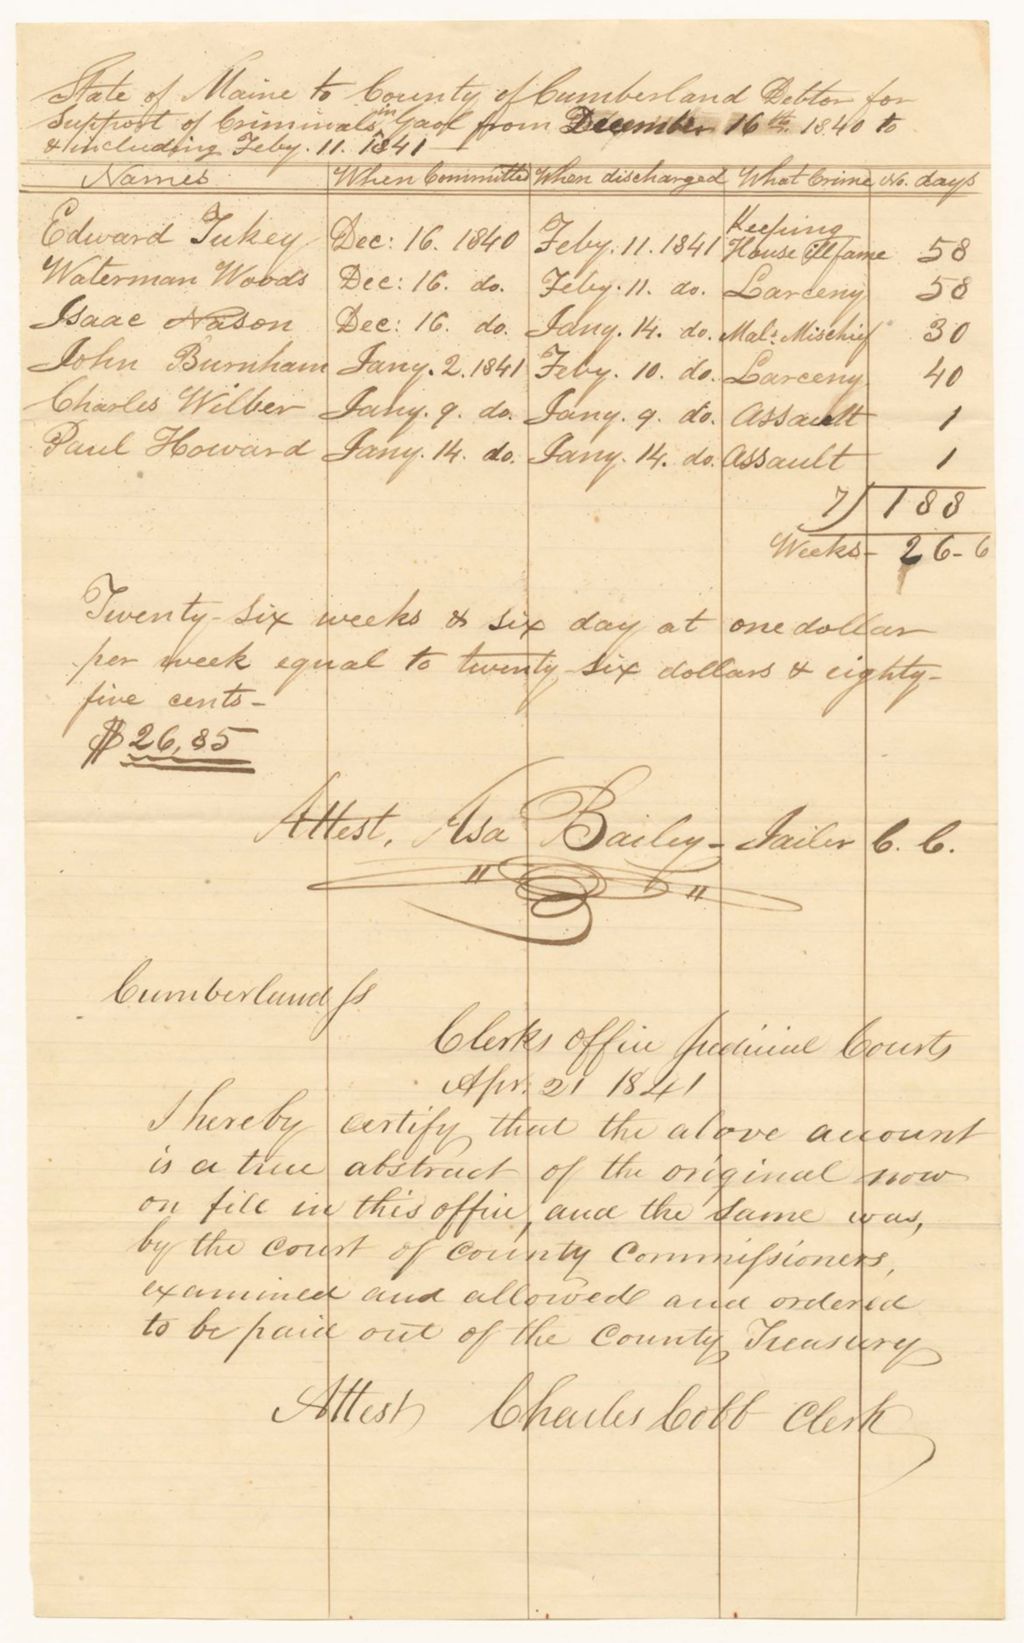 State of Maine to County of Cumberland Debtor for
support of Criminals in Gaol from December 16th. 1840 to
& including Feby. 11. 1841
Names When Committed When discharged What Crime No. days
Edward Tukey Dec: 16. 1840 Feby. 11. 1841 Keeping House ill fame 58
Waterman Woods Dec: 16. do. Feby. 11. do. Larceny 58
Isaac Nason Dec: 16. do. Jany. 14. do. Mals. Mischief 30
John Burnham Jany. 2. 1841 Feby. 10. do. Larceny 40
Charles Wilber Jany. 9. do. Jany. 9. do. Assault 1
Paul Howard Jany. 14. do. Jany. 14. do. Assault 1
7) 188
Weeks - 26-6
Twenty-six weeks & six day at one dollar
per week equal to twenty-six dollars & eighty-
five cents-
$26,85
Attest, Asa Bailey - Jailer C. C.
Cumberland ss
Clerks office Judicial Courts
Apr. 21 1841
I hereby certify that the above account
is a true abstract of the original now
on file in this office, and the same was,
by the court of county Commissioners,
examined and allowed and ordered
to be paid out of the County Treasury
Attest Charles Cobb Clerk